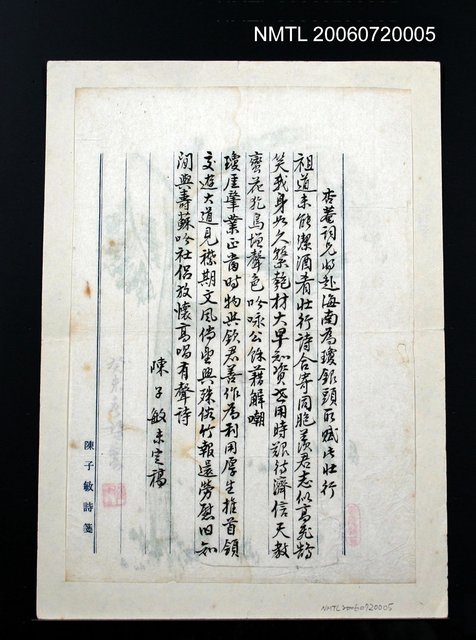 NMTL 20060720005
杏菴詞兄將赴海南為瓊銀頭取賦此壯行
祖道未能潔酒肴壯行詩合寄同胞羨君志似高飛鵠
笑我身如久繫匏材大早知資世用時艱待濟信天教
蠻花犵鳥增聲色吟咏公餘藉解嘲
瓊厓肇業正當時物與欽君善作為利用厚生推首領
交遊大道見襟期文風佈望興殊俗竹報還勞慰旧知
聞與壽蘇吟社侶放懷高唱有聲詩
陳子敏未定稿
陳子敏詩箋
NMTL20060720005